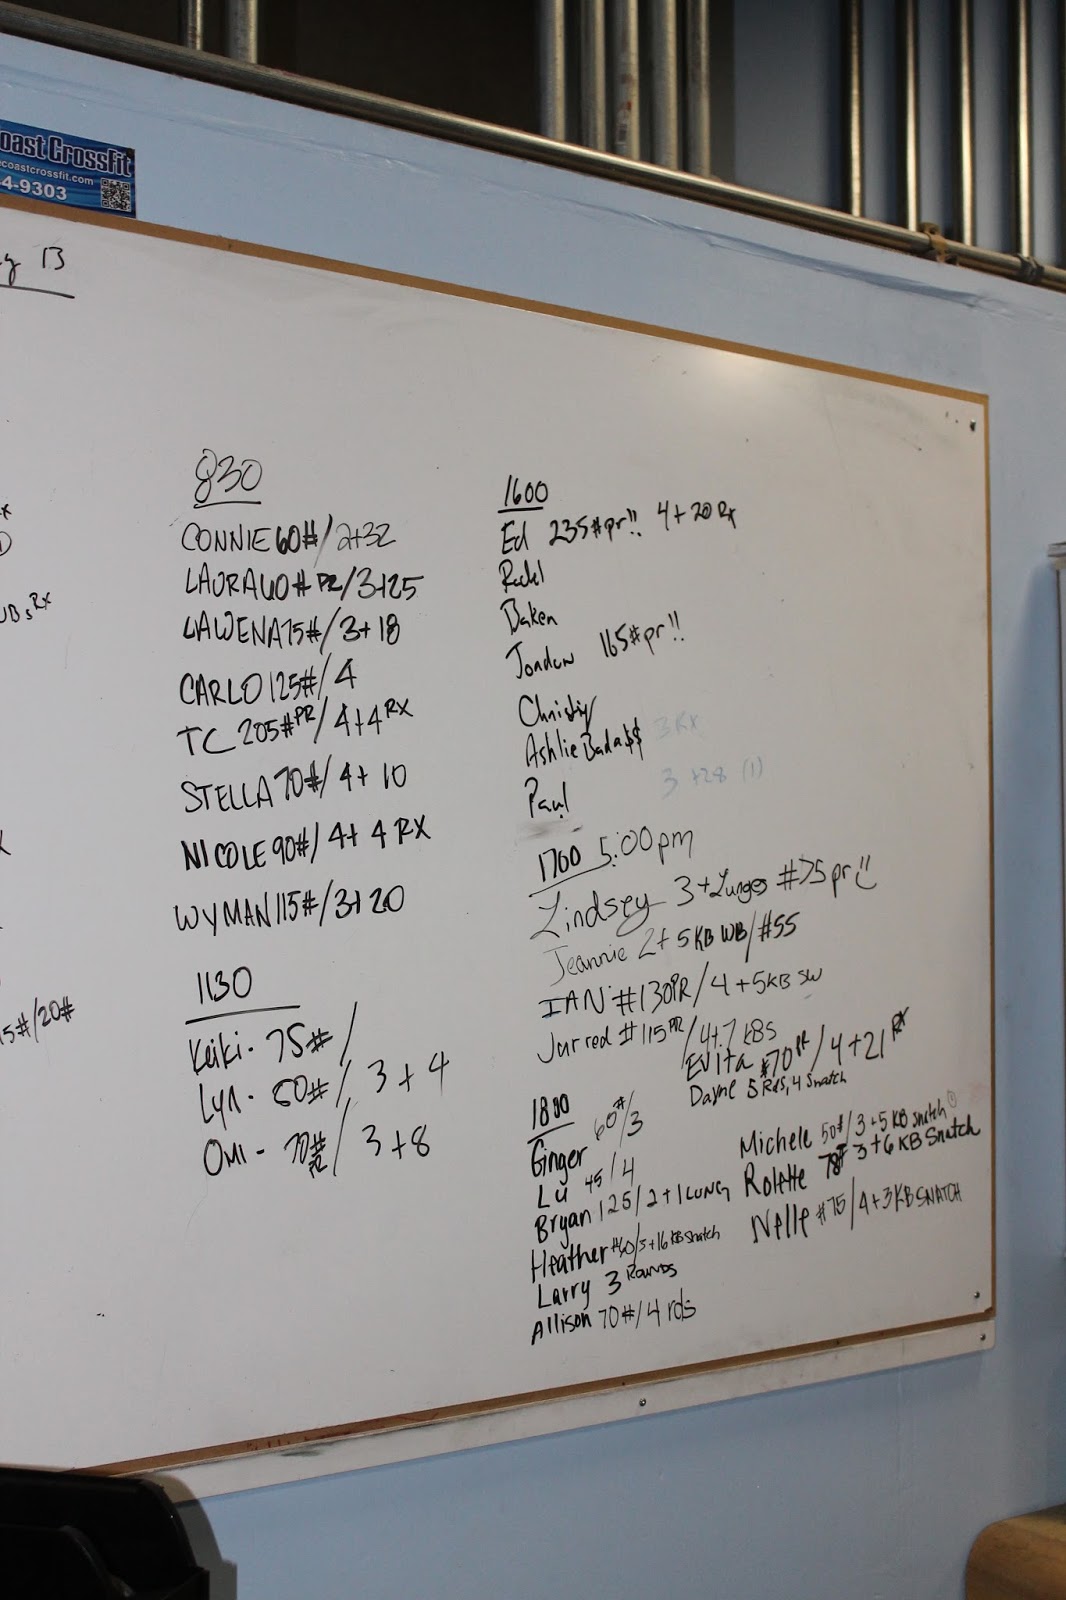 oast CrossFit
ecoastcrossfit.com
4-9303
13
15#/20#
830
CONNIE 60#/2+32
LAURA 60# PR/3+25
LAWENA 75#/3+18
CARLO 125#/4
TC 205# PR/4+4 RX
STELLA 70#/4+10
NICOLE 90#/4+4 RX
WYMAN 115#/3+20
1130
Keiki - 75#/
Lyn - 80#/3+4
OMI - 70# PR/3+8
1600
Ed 235# pr!! 4+20 Rx
Baken
Jordan 165# pr!!
Christy
Ashlie Bada$$ 3 RX
Paul 3+28 (1)
1700 5:00pm
Lindsey 3+Lunges #75 pr!!
Jeannie 2+5 KB WB/#55
IAN #130PR/4+5KB SW
Jarred #115 PR/4+7 KBS
Evita #70 PR/4+21 RX
Dayne 5 Rds, 4 Snatch
1800
Ginger 60#/3
Lu 45/4
Bryan 125/2+1 LUNG
Heather #60/3+16 KB Snatch
Larry 3 Rounds
Allison 70#/4 rds
Michele 50#/3+5 KB snatch
Rolette 78# 3+6 KB Snatch
Nelle #75/4+3 KB SNATCH